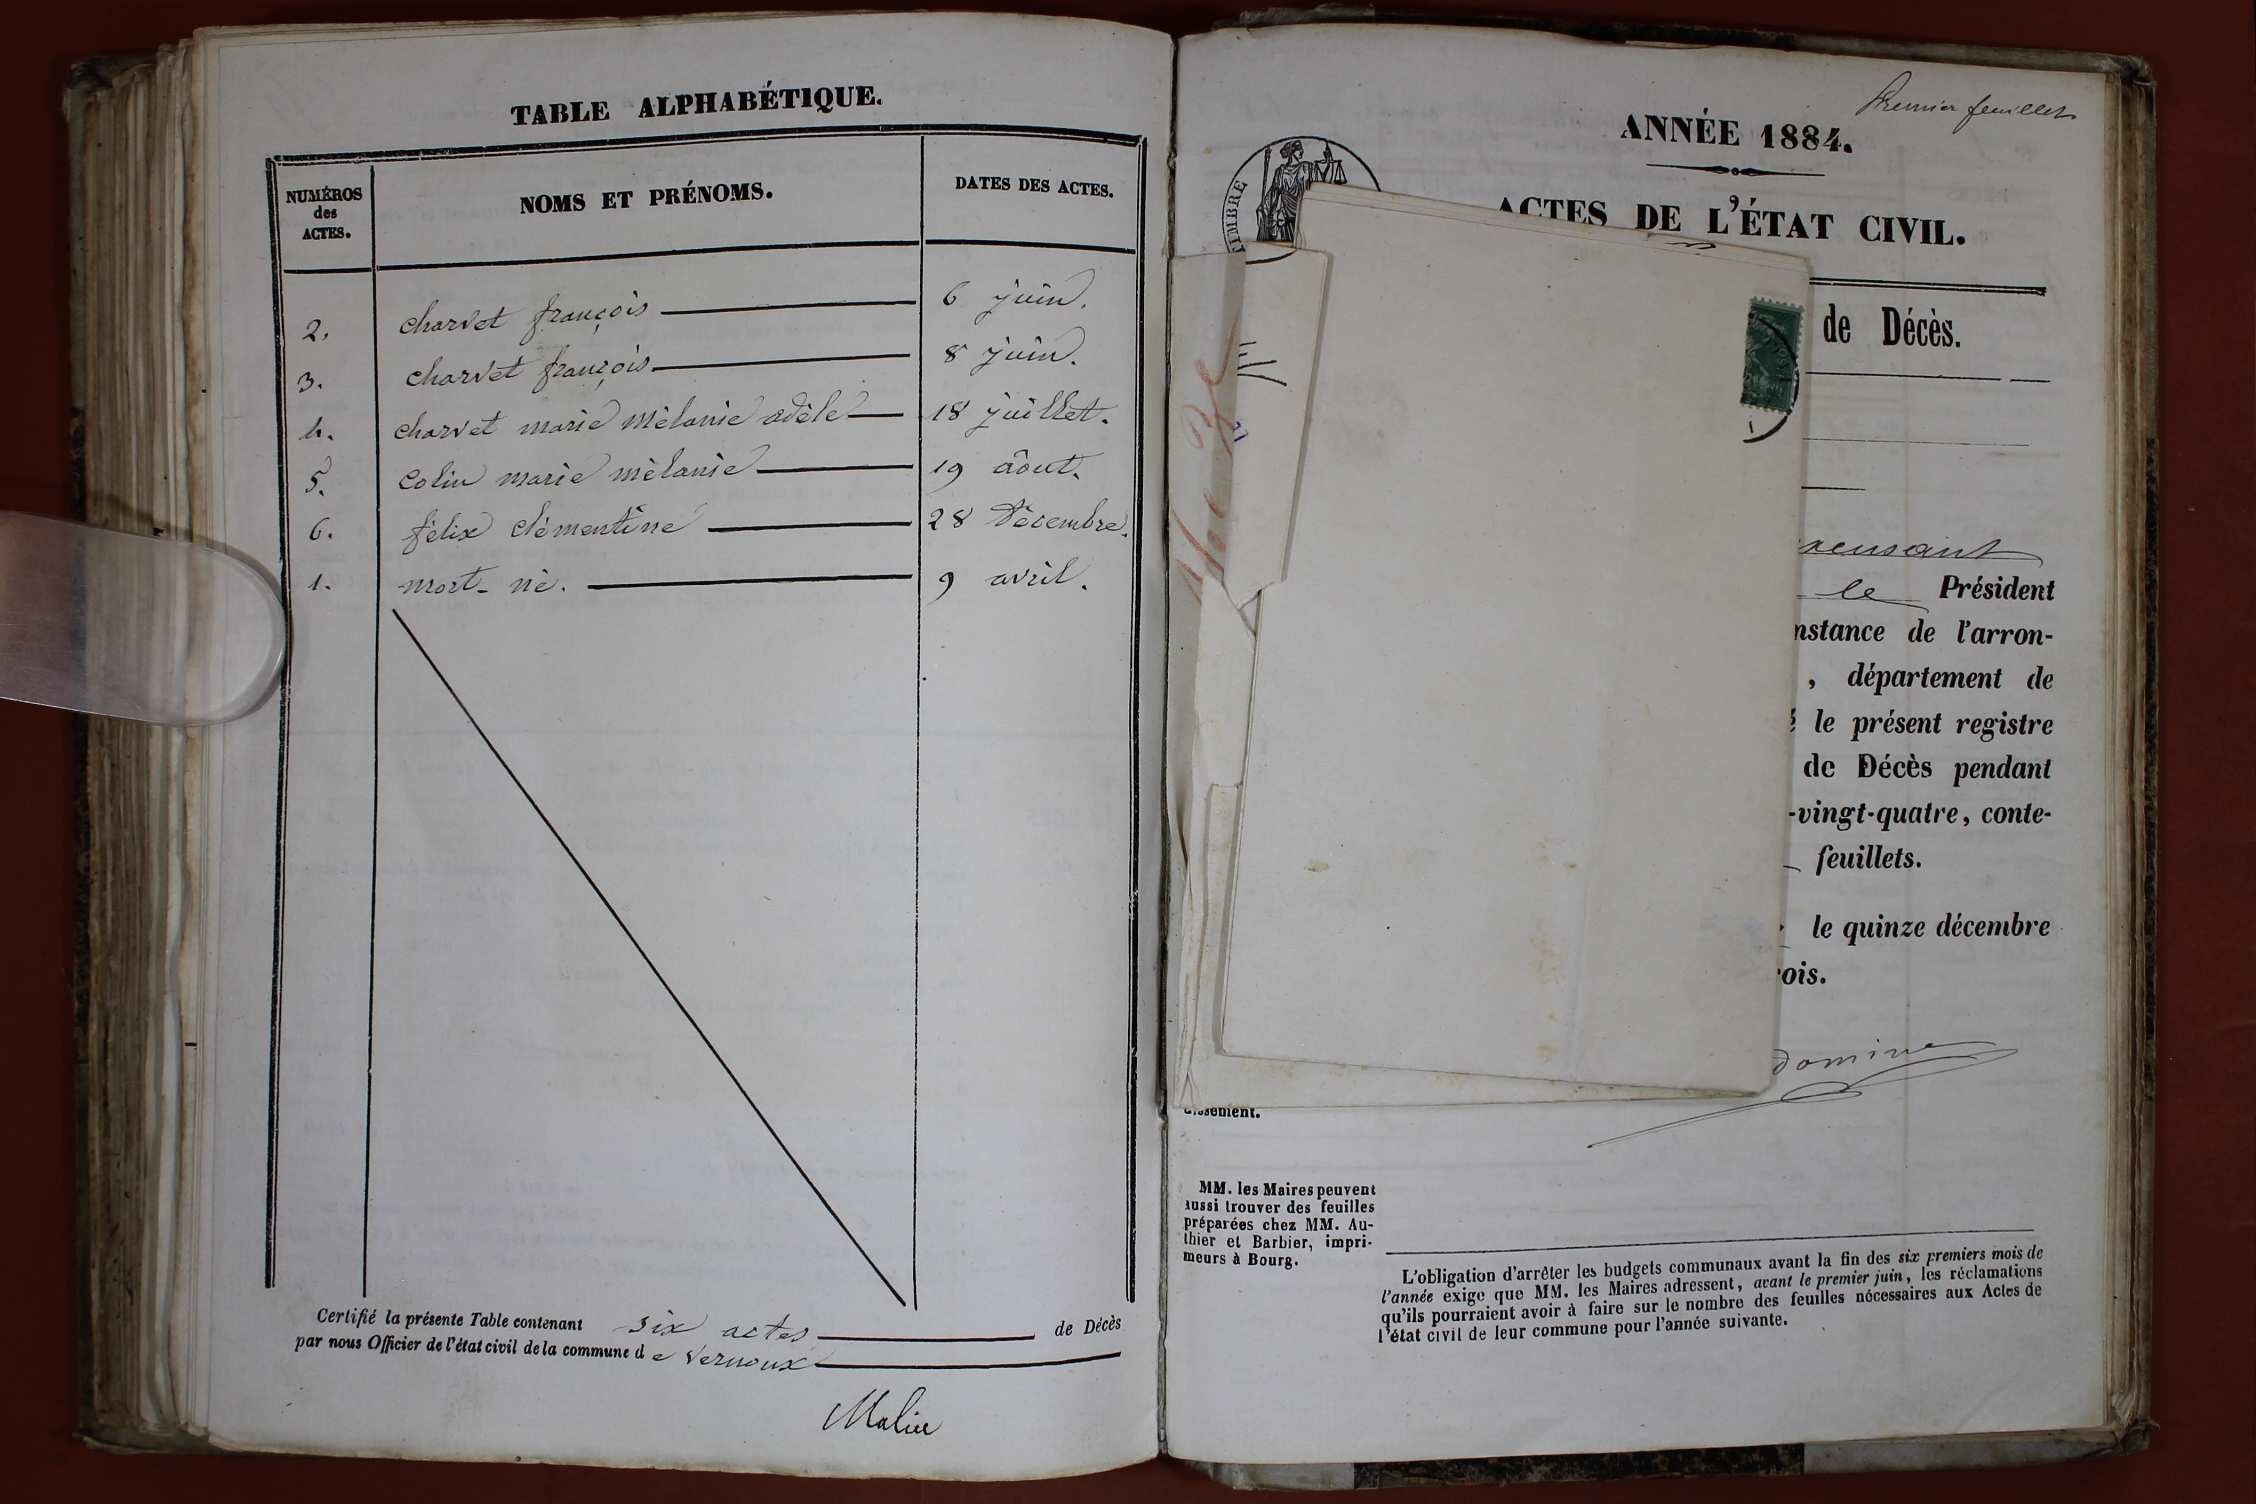 TABLE ALPHABÉTIQUE.
NUMÉROS
des
ACTES.
NOMS ET PRÉNOMS.
DATES DES ACTES.
2. charvet françois 6 juin.
3. charvet françois 8 juin.
4. charvet marie mélanie adèle 18 juillet.
5. Colin marie mélanie 19 âout.
6. félix clémentine 28 décembre.
1. mort-né. 9 avril.
Certifié la présente Table contenant six actes de Décès
par nous Officier de l'état civil de la commune de Vernoux
Premier feuillet
ANNÉE 1884.
TIMBRE
ACTES DE L'ÉTAT CIVIL.
de Décès.
le Président
nstance de l'arron-
, département de
le présent registre
de Décès pendant
-vingt-quatre, conte-
feuillets.
le quinze décembre
rois.
dissement.
MM. les Maires peuvent
aussi trouver des feuilles
préparées chez MM. Au-
thier et Barbier, impri-
meurs à Bourg.
L'obligation d'arrêter les budgets communaux avant la fin des six premiers mois de
l'année exige que MM. les Maires adressent, avant le premier juin, les réclamations
qu'ils pourraient avoir à faire sur le nombre des feuilles nécessaires aux Actes de
l'état civil de leur commune pour l'année suivante.